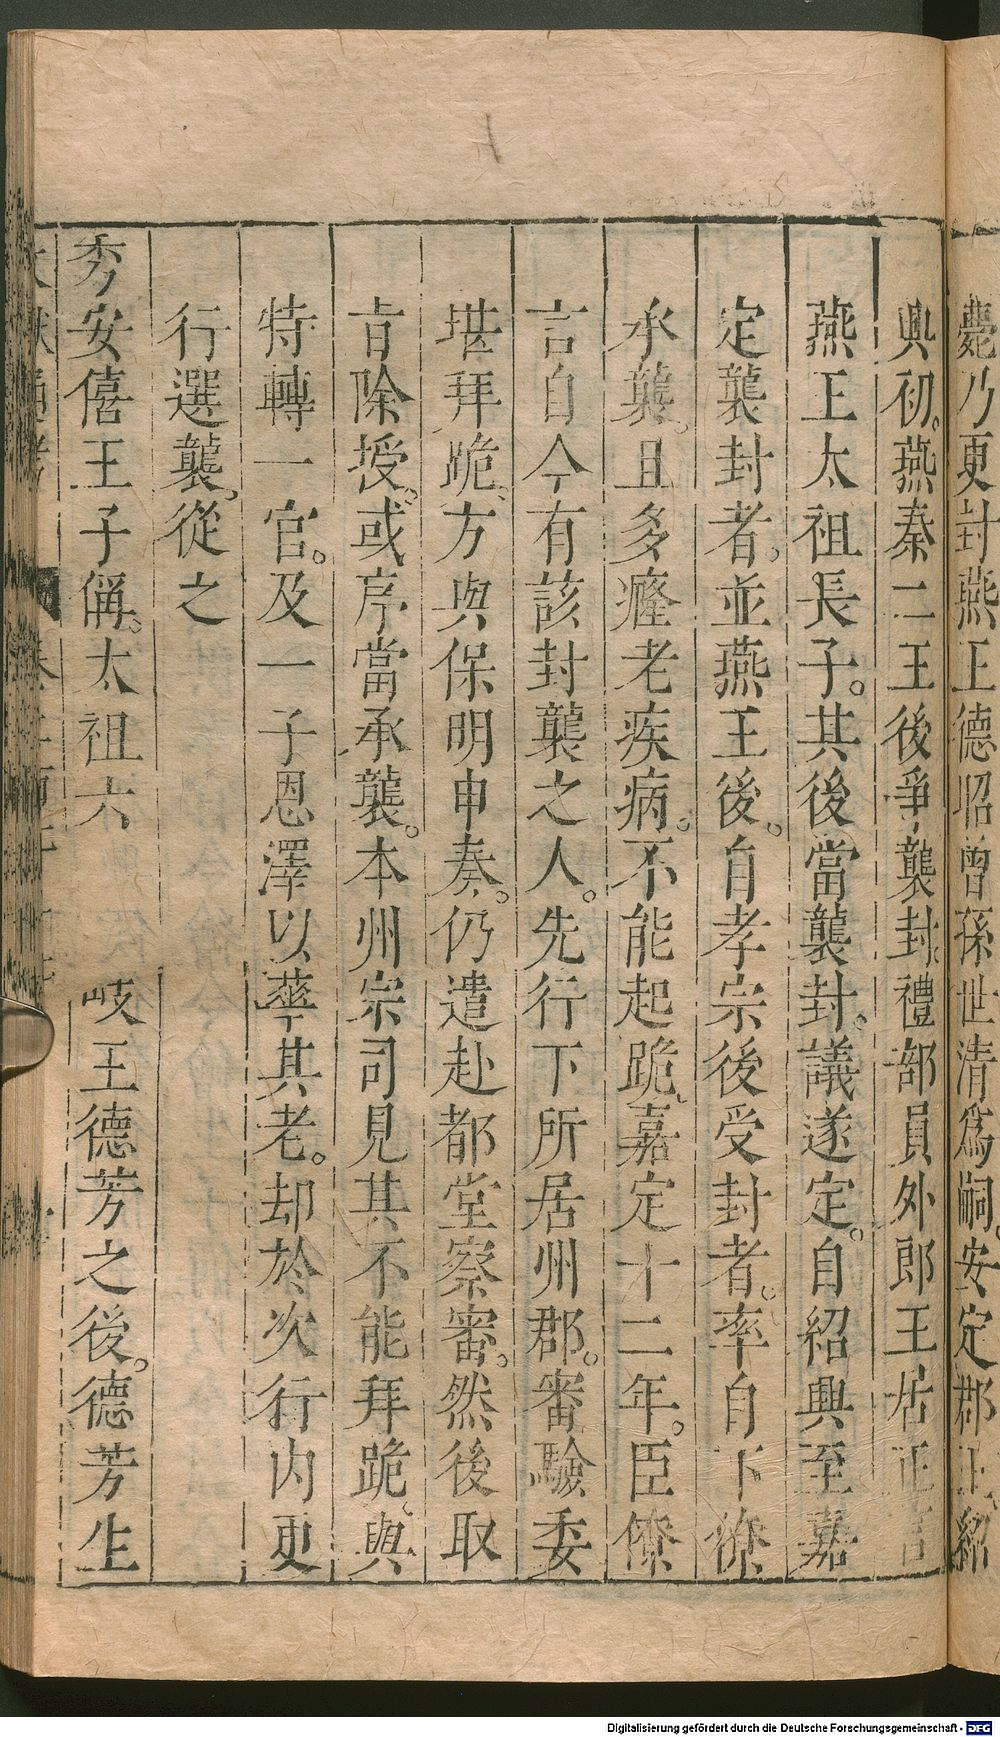 薨乃更封燕王德昭曾孫世清爲嗣。安定郡王紹
興初。燕秦二王後爭襲封。禮部員外郎王居正言
燕王太祖長子。其後當襲封。議遂定。自紹興至嘉
定襲封者。並燕王後。自孝宗後受封者。率自下僚
承襲。且多癃老疾病。不能起跪。嘉定十二年。臣僚
言自今有該封襲之人。先行下所居州郡。審驗委
堪拜跪。方與保明申奏。仍遣赴都堂察審。然後取
旨除授。或序當承襲。本州宗司見其不能拜跪。與
特轉一官。及一子恩澤以華其老。却於次行內更
行選襲。從之
秀安僖王子偁。太祖六 岐王德芳之後。德芳生
Digitalisierung gefördert durch die Deutsche Forschungsgemeinschaft - DFG